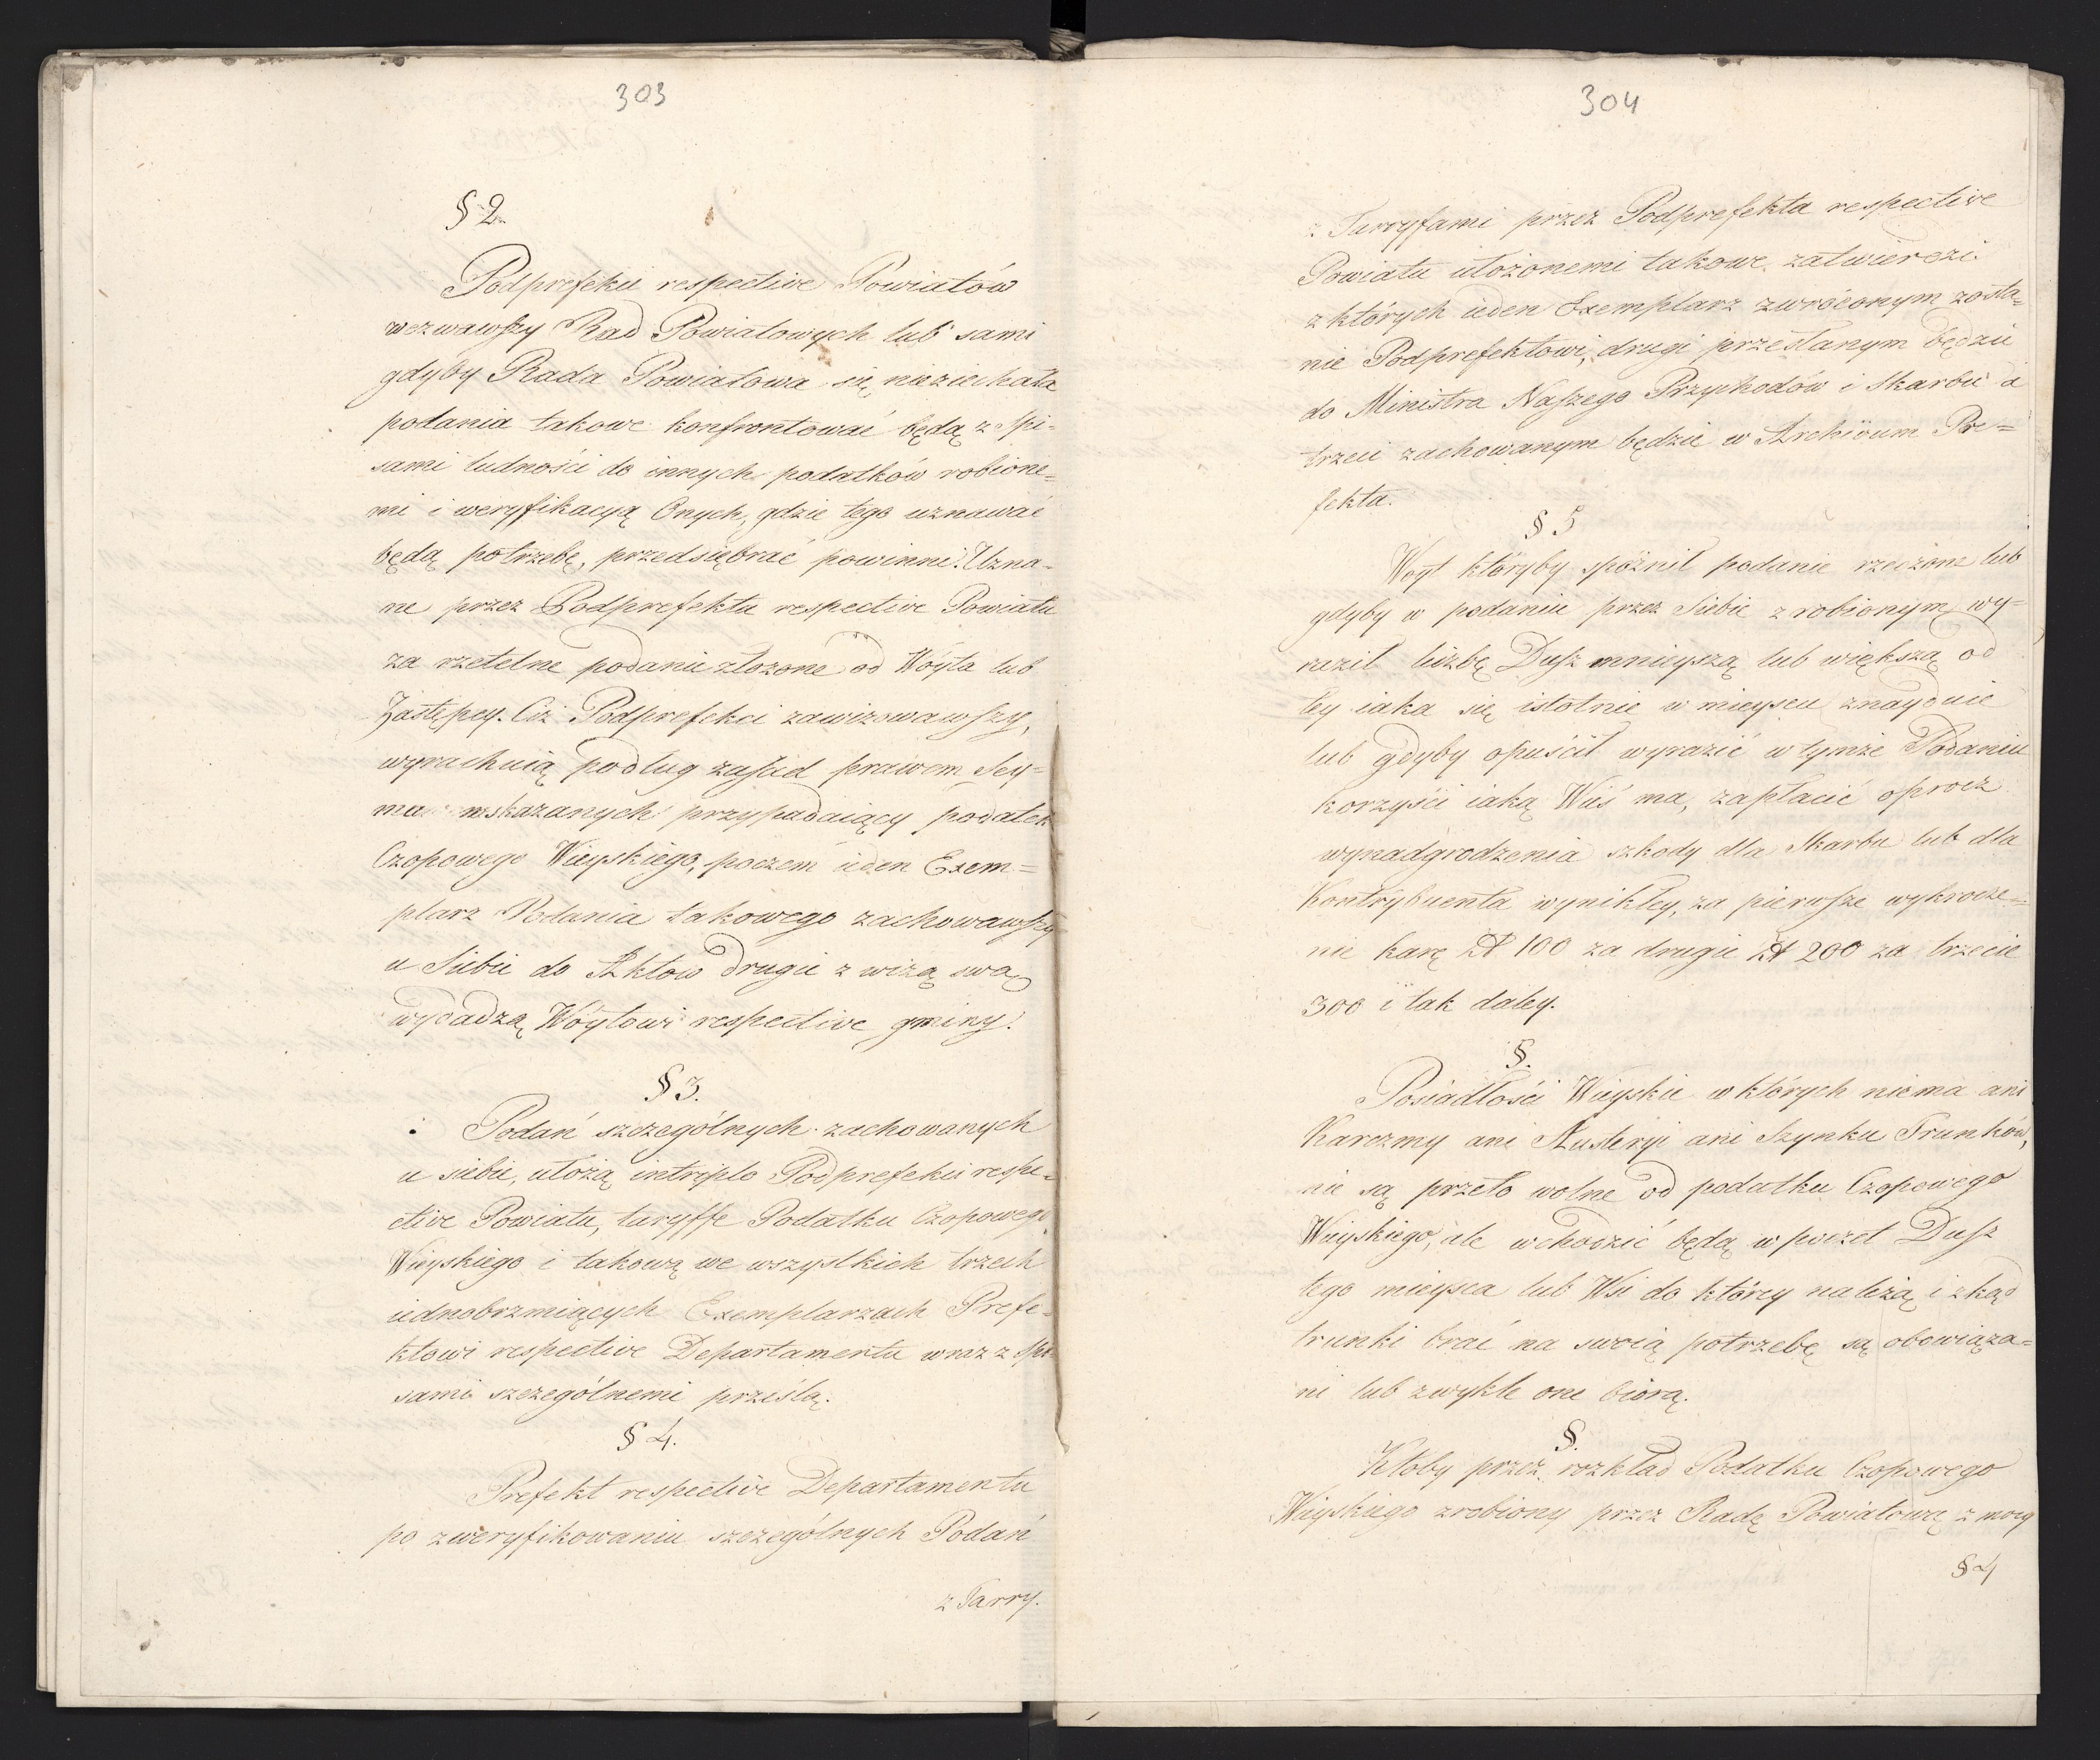 303
§ 2.
Podprefekci respective Powiatów
wezwawszy Rad Powiatowych lub sami
gdyby Rada Powiatowa się nieziechała
podania takowe konfrontować będą z spi-
sami ludności do innych podatków robione-
mi i weryfikacyą Onych, gdzie tego uznawać
będą potrzebę, przedsiębrać powinni. Uzna-
ne przez Podprefekta respective Powiatu
za rzetelne podanie złożone od Wóyta lub
Zastępcy. Ciż Podprefekci zawizowawszy,
wyrachuią podług zasad prawem Sey-
mu wskazanych przypadaiący podatek
Czopowego Wieyskiego, poczem ieden Exem=
plarz Podania takowego zachowawszy
u Siebie do Aktow drugie z wizą swą
wydadzą Wóytowi respective gminy.
§ 3.
Podań szczególnych zachowanych
u siebie, ułożą intriplo Podprefekci respe-
ctive Powiatu, taryffe Podatku Czopowego
Wieyskiego i takową we wszystkich trzech
iednobrzmiących Exemplarzach Prefe-
ktowi respective Departamentu wraz z spi-
sami szczególnemi prześlą.
§ 4.
Prefekt respective Departamentu
po zweryfikowaniu szczególnych Podań
z Tarry.
304
z Tarryfami przez Podprefekta respective
Powiatu ułożonemi takowe zatwierdzi.
z których ieden Exemplarz zwróconym zosta=
nie Podprefektowi, drugi przesłanym będzie
do Ministra Naszego Przychodów i Skarbu a
trzeci zachowanym będzie w Archivum Pre=
fekta.
§ 5
Woyt któryby spóźnił podanie rzeczone lub
gdyby w podaniu przez Siebie zrobionym wy=
raził liczbę Dusz mnieyszą lub większą od
tey iaka się istotnie w mieyscu znayduie
lub gdyby opuścił wyrazić w tymże Podaniu
korzyści iaką Wieś ma, zapłacić oprocz
wynadgrodzenia szkody dla Skarbu lub dla
Kontrybuenta wynikłey, za pierwsze wykrocze=
nie karę Zł 100 za drugie Zł 200 za trzecie
300 i tak daley.
§.
Posiadłości Wieyskie w których niema ani
Karczmy ani Austeryi ani Szynku Trunków,
nie są przeto wolne od podatku Czopowego
Wieyskiego, ale wchodzić będą w poczet Dusz
tego mieysca lub Wsi do którey należą i zkąd
trunki brać na swoią potrzebę są obowiąza=
ni lub zwykle one biorą.
§.
Ktoby przez rozkład Podatku Czopowego
Wieyskiego zrobiony przez Radę Powiatową z mocy
§ 4